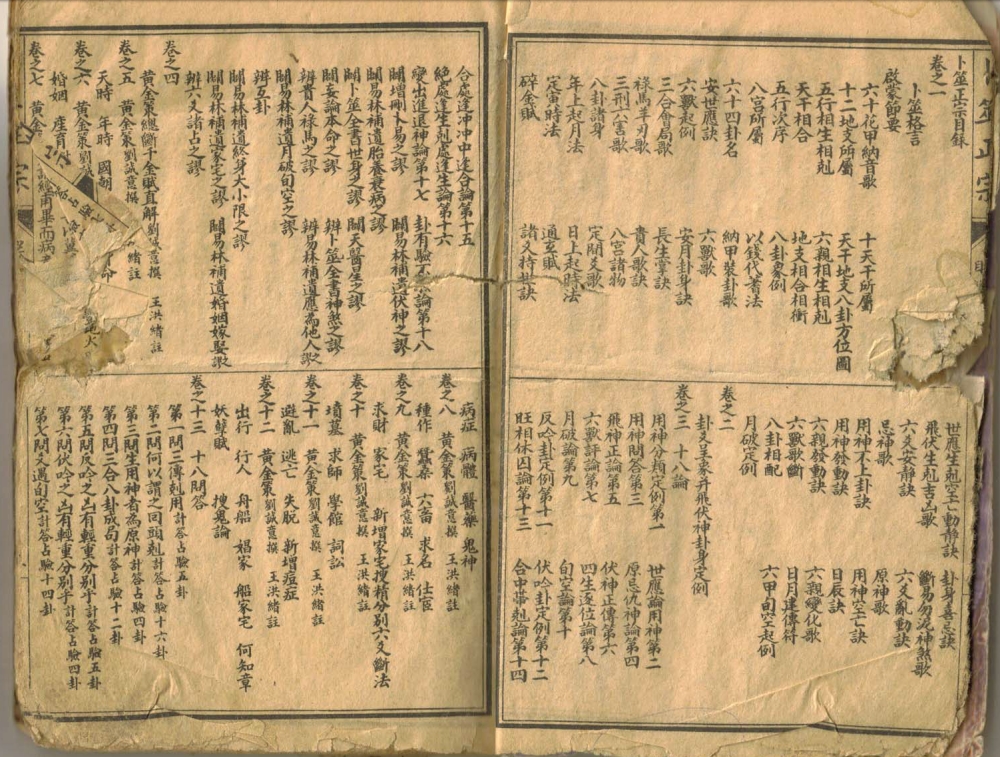 卜筮正宗目錄
卷之一
卜筮格言
啟蒙節要
六十花甲納音歌 十天干所屬
十二地支所屬 天干地支八卦方位圖
五行相生相剋 六親相生相剋
天干相合 地支相合相衝
五行次序 八卦象例
八宮所屬 以錢代蓍法
六十四卦名 納甲裝卦歌
安世應訣 六獸歌
六獸起例 安月卦身訣
三合會局歌 長生掌訣
祿馬羊刃歌 貴人歌訣
三刑六害歌 八宮諸物
八卦諸身 定間爻歌
年上起月法 日上起時法
定寅時法 通玄賦
碎金賦 諸爻持世訣
世應生剋空亡動靜訣 卦身喜忌訣
飛伏生剋吉凶歌 斷易勿泥神煞歌
六爻安靜訣 六爻亂動訣
忌神歌 原神歌
用神不上卦訣 用神空亡訣
用神發動訣 日辰訣
六親發動訣 六親變化歌
六獸歌斷 日月建傳符
八卦相配 六甲旬空起例
月破定例
卷之二
卦爻呈象并飛伏神卦身定例
卷之三 十八論
用神分類定例第一 世應論用神第二
用神問答第三 原忌仇神論第四
飛神正論第五 伏神正傳第六
六獸評論第七 四生逐位論第八
月破論第九 旬空論第十
反吟卦定例第十一 伏吟卦定例第十二
旺相休囚論第十三 合中帶剋論第十四
合處逢冲冲中逢合論第十五
絕處逢生剋處逢生論第十六
變出進退神論第十七 卦有驗不驗論第十八
闢增刪卜易之謬 闢易林補遺伏神之謬
闢易林補遺胎養衰病之謬
闢卜筮全書世身之謬 闢天醫星之謬
闢妄論本命之謬 辨卜筮全書神煞之謬
辨貴人祿馬之謬 辨易林補遺應為他人之謬
闢易林補遺月破旬空之謬
辨互卦
闢易林補遺終身大小限之謬
闢易林補遺家宅之謬 闢易林補遺婚姻嫁娶之謬
辨六爻諸占之謬
卷之四
黃金策總斷千金賦直解 劉誠意撰 王洪緒註
卷之五 黃金策 劉誠意撰
天時 年時 國朝
卷之六 黃金策 劉誠
婚姻 產育
卷之七 黃金
病症 病體 醫藥 鬼神
卷之八 黃金策 劉誠意撰 王洪緒註
種作 蠶桑 六畜 求名 仕宦
卷之九 黃金策 劉誠意撰 王洪緒註
求財 家宅 新增家宅搜精分別六爻斷法
卷之十 黃金策 劉誠意撰 王洪緒註
墳墓 求師 學館 詞訟
卷之十一 黃金策 劉誠意撰 王洪緒註
避亂 逃亡 失脫 新增痘症
卷之十二 黃金策 劉誠意撰 王洪緒註
出行 行人 舟船 娼家 船家宅 何知章
妖孽賦 搜鬼論
卷之十三 十八問答
第一問三傳剋用 計答占驗五卦
第二問何以謂之回頭剋 計答占驗十六卦
第三問生用神者為原神 計答占驗四卦
第四問三合八卦成句 計答占驗十二卦
第五問反吟之凶有輕重分別乎 計答占驗五卦
第六問伏吟之凶有輕重分別乎 計答占驗四卦
第七問爻遇旬空 計答占驗十四卦